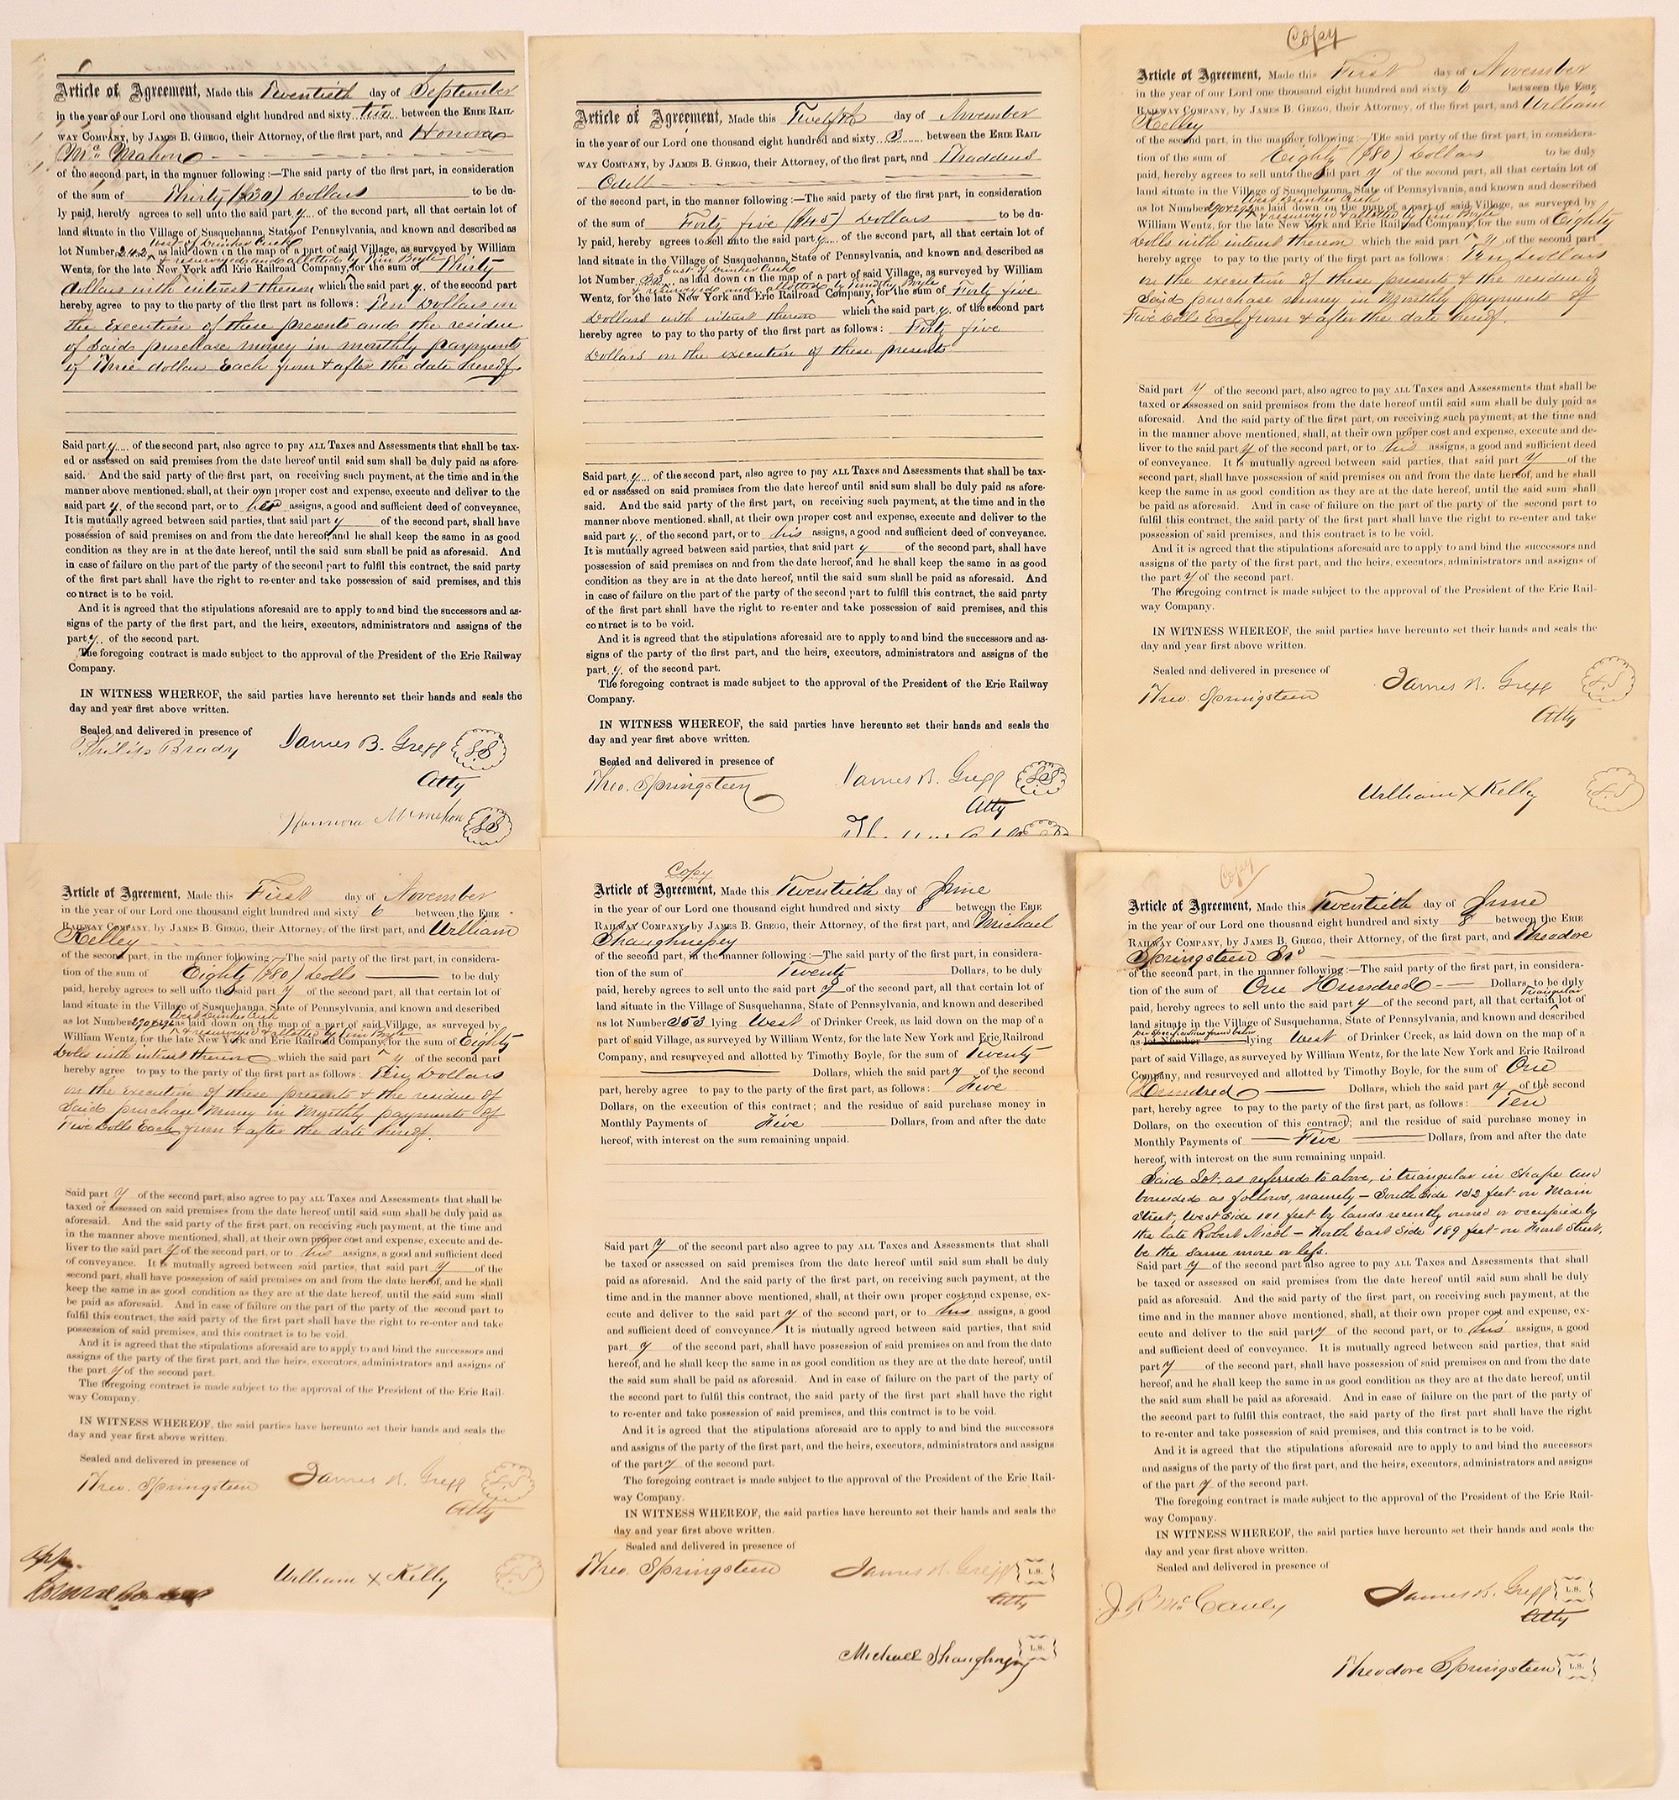 Article of Agreement, Made this Twentieth day of September
in the year of our Lord one thousand eight hundred and sixty two between the ERIE RAIL-
WAY COMPANY, by JAMES B. GREGG, their Attorney, of the first part, and Honora
Mc Mahon
of the second part, in the manner following:—The said party of the first part, in consideration
of the sum of Thirty ($30) Dollars to be du-
ly paid, hereby agrees to sell unto the said party of the second part, all that certain lot of
land situate in the Village of Susquehanna, State of Pennsylvania, and known and described as
West of Drinker Creek
lot Number 242 as laid down on the map of a part of said Village, as surveyed by William
& resurveyed and allotted by Tim Boyle
Wentz, for the late New York and Erie Railroad Company, for the sum of Thirty
dollars with interest thereon which the said party of the second part
hereby agree to pay to the party of the first part as follows: Ten Dollars on
the execution of these presents and the residue
of said purchase money in monthly payments
of Three dollars Each from & after the date hereof
Said party of the second part, also agree to pay ALL Taxes and Assessments that shall be tax-
ed or assessed on said premises from the date hereof until said sum shall be duly paid as afore-
said. And the said party of the first part, on receiving such payment, at the time and in the
manner above mentioned, shall, at their own proper cost and expense, execute and deliver to the
said party of the second part, or to her assigns, a good and sufficient deed of conveyance,
It is mutually agreed between said parties, that said party of the second part, shall have
possession of said premises on and from the date hereof, and he shall keep the same in as good
condition as they are in at the date hereof, until the said sum shall be paid as aforesaid. And
in case of failure on the part of the party of the second part to fulfil this contract, the said party
of the first part shall have the right to re-enter and take possession of said premises, and this
contract is to be void.
And it is agreed that the stipulations aforesaid are to apply to and bind the successors and as-
signs of the party of the first part, and the heirs, executors, administrators and assigns of the
party of the second part.
The foregoing contract is made subject to the approval of the President of the Erie Railway
Company.
IN WITNESS WHEREOF, the said parties have hereunto set their hands and seals the
day and year first above written.
Sealed and delivered in presence of
Philip Brady James B. Gregg L.S.
Atty
Honora McMahon L.S.
Article of Agreement, Made this Twelfth day of November
in the year of our Lord one thousand eight hundred and sixty 3 between the ERIE RAIL-
WAY COMPANY, by JAMES B. GREGG, their Attorney, of the first part, and Thaddeus
Odell
of the second part, in the manner following:—The said party of the first part, in consideration
of the sum of Forty five ($45) Dollars to be du-
ly paid, hereby agrees to sell unto the said party of the second part, all that certain lot of
land situate in the Village of Susquehanna, State of Pennsylvania, and known and described as
East of Drinker Creek
lot Number as laid down on the map of a part of said Village, as surveyed by William
& resurveyed and allotted by Timothy Boyle
Wentz, for the late New York and Erie Railroad Company, for the sum of Forty five
Dollars with interest thereon which the said party of the second part
hereby agree to pay to the party of the first part as follows: Forty five
Dollars on the execution of these presents
Said party of the second part, also agree to pay ALL Taxes and Assessments that shall be tax-
ed or assessed on said premises from the date hereof until said sum shall be duly paid as afore-
said. And the said party of the first part, on receiving such payment, at the time and in the
manner above mentioned, shall, at their own proper cost and expense, execute and deliver to the
said party of the second part, or to his assigns, a good and sufficient deed of conveyance.
It is mutually agreed between said parties, that said party of the second part, shall have
possession of said premises on and from the date hereof, and he shall keep the same in as good
condition as they are in at the date hereof, until the said sum shall be paid as aforesaid. And
in case of failure on the part of the party of the second part to fulfil this contract, the said party
of the first part shall have the right to re-enter and take possession of said premises, and this
contract is to be void.
And it is agreed that the stipulations aforesaid are to apply to and bind the successors and as-
signs of the party of the first part, and the heirs, executors, administrators and assigns of the
party of the second part.
The foregoing contract is made subject to the approval of the President of the Erie Railway
Company.
IN WITNESS WHEREOF, the said parties have hereunto set their hands and seals the
day and year first above written.
Sealed and delivered in presence of
Theo. Springsteen James B. Gregg L.S.
Atty
Copy
Article of Agreement, Made this First day of November
in the year of our Lord one thousand eight hundred and sixty 6 between the ERIE
RAILWAY COMPANY, by JAMES B. GREGG, their Attorney, of the first part, and William
Kelley
of the second part, in the manner following:—The said party of the first part, in considera-
tion of the sum of Eighty ($80) Dollars to be duly
paid, hereby agrees to sell unto the said party of the second part, all that certain lot of
land situate in the Village of Susquehanna, State of Pennsylvania, and known and described
West Drinker Creek
as lot Number 290&292 as laid down on the map of a part of said Village, as surveyed by
& resurveyed & allotted by Tim Boyle
William Wentz, for the late New York and Erie Railroad Company, for the sum of Eighty
Dolls with interest thereon which the said party of the second part
hereby agree to pay to the party of the first part as follows: Ten Dollars
on the execution of these presents & the residue of
said purchase money in Monthly payments of
Five Dolls Each from & after the date hereof.
Said party of the second part, also agree to pay ALL Taxes and Assessments that shall be
taxed or assessed on said premises from the date hereof until said sum shall be duly paid as
aforesaid. And the said party of the first part, on receiving such payment, at the time and
in the manner above mentioned, shall, at their own proper cost and expense, execute and de-
liver to the said party of the second part, or to his assigns, a good and sufficient deed
of conveyance. It is mutually agreed between said parties, that said party of the
second part, shall have possession of said premises on and from the date hereof, and he shall
keep the same in as good condition as they are at the date hereof, until the said sum shall
be paid as aforesaid. And in case of failure on the part of the party of the second part to
fulfil this contract, the said party of the first part shall have the right to re-enter and take
possession of said premises, and this contract is to be void.
And it is agreed that the stipulations aforesaid are to apply to and bind the successors and
assigns of the party of the first part, and the heirs, executors, administrators and assigns of
the party of the second part.
The foregoing contract is made subject to the approval of the President of the Erie Rail-
way Company.
IN WITNESS WHEREOF, the said parties have hereunto set their hands and seals the
day and year first above written.
Sealed and delivered in presence of
Theo. Springsteen James B. Gregg L.S.
Atty
William X Kelly L.S.
Article of Agreement, Made this First day of November
in the year of our Lord one thousand eight hundred and sixty 6 between the ERIE
RAILWAY COMPANY, by JAMES B. GREGG, their Attorney, of the first part, and William
Kelley
of the second part, in the manner following:—The said party of the first part, in considera-
tion of the sum of Eighty ($80) Dolls to be duly
paid, hereby agrees to sell unto the said party of the second part, all that certain lot of
land situate in the Village of Susquehanna, State of Pennsylvania, and known and described
West Drinker Creek
as lot Number 290&292 as laid down on the map of a part of said Village, as surveyed by
& resurveyed & allotted by Tim Boyle
William Wentz, for the late New York and Erie Railroad Company, for the sum of Eighty
Dolls with interest thereon which the said party of the second part
hereby agree to pay to the party of the first part as follows: Ten Dollars
on the execution of these presents & the residue of
said purchase money in Monthly payments of
Five Dolls Each from & after the date hereof.
Said party of the second part, also agree to pay ALL Taxes and Assessments that shall be
taxed or assessed on said premises from the date hereof until said sum shall be duly paid as
aforesaid. And the said party of the first part, on receiving such payment, at the time and
in the manner above mentioned, shall, at their own proper cost and expense, execute and de-
liver to the said party of the second part, or to his assigns, a good and sufficient deed
of conveyance. It is mutually agreed between said parties, that said party of the
second part, shall have possession of said premises on and from the date hereof, and he shall
keep the same in as good condition as they are at the date hereof, until the said sum shall
be paid as aforesaid. And in case of failure on the part of the party of the second part to
fulfil this contract, the said party of the first part shall have the right to re-enter and take
possession of said premises, and this contract is to be void.
And it is agreed that the stipulations aforesaid are to apply to and bind the successors and
assigns of the party of the first part, and the heirs, executors, administrators and assigns of
the party of the second part.
The foregoing contract is made subject to the approval of the President of the Erie Rail-
way Company.
IN WITNESS WHEREOF, the said parties have hereunto set their hands and seals the
day and year first above written.
Sealed and delivered in presence of
Theo. Springsteen James B. Gregg L.S.
Atty
App
William X Kelly L.S.
Copy
Article of Agreement, Made this Twentieth day of June
in the year of our Lord one thousand eight hundred and sixty 8 between the ERIE
RAILWAY COMPANY, by JAMES B. GREGG, their Attorney, of the first part, and Michael
Shaughnessy
of the second part, in the manner following:—The said party of the first part, in considera-
tion of the sum of Twenty Dollars, to be duly
paid, hereby agrees to sell unto the said party of the second part, all that certain lot of
land situate in the Village of Susquehanna, State of Pennsylvania, and known and described
as lot Number 353 lying West of Drinker Creek, as laid down on the map of a
part of said Village, as surveyed by William Wentz, for the late New York and Erie Railroad
Company, and resurveyed and allotted by Timothy Boyle, for the sum of Twenty
Dollars, which the said party of the second
part, hereby agree to pay to the party of the first part, as follows: Five
Dollars, on the execution of this contract; and the residue of said purchase money in
Monthly Payments of Five Dollars, from and after the date
hereof, with interest on the sum remaining unpaid.
Said party of the second part also agree to pay ALL Taxes and Assessments that shall
be taxed or assessed on said premises from the date hereof until said sum shall be duly
paid as aforesaid. And the said party of the first part, on receiving such payment, at the
time and in the manner above mentioned, shall, at their own proper cost and expense, ex-
ecute and deliver to the said party of the second part, or to his assigns, a good
and sufficient deed of conveyance. It is mutually agreed between said parties, that said
party of the second part, shall have possession of said premises on and from the date
hereof, and he shall keep the same in as good condition as they are at the date hereof, until
the said sum shall be paid as aforesaid. And in case of failure on the part of the party of
the second part to fulfil this contract, the said party of the first part shall have the right
to re-enter and take possession of said premises, and this contract is to be void.
And it is agreed that the stipulations aforesaid are to apply to and bind the successors
and assigns of the party of the first part, and the heirs, executors, administrators and assigns
of the party of the second part.
The foregoing contract is made subject to the approval of the President of the Erie Rail-
way Company.
IN WITNESS WHEREOF, the said parties have hereunto set their hands and seals the
day and year first above written.
Sealed and delivered in presence of
Theo. Springsteen James B. Gregg L.S.
Atty
Michael Shaughnessy L.S.
Copy
Article of Agreement, Made this Twentieth day of June
in the year of our Lord one thousand eight hundred and sixty 8 between the ERIE
RAILWAY COMPANY, by JAMES B. GREGG, their Attorney, of the first part, and Theodore
Springsteen
of the second part, in the manner following:—The said party of the first part, in considera-
tion of the sum of One Hundred Dollars, to be duly
triangular
paid, hereby agrees to sell unto the said party of the second part, all that certain lot of
land situate in the Village of Susquehanna, State of Pennsylvania, and known and described
per specifications given below
as lot Number lying West of Drinker Creek, as laid down on the map of a
part of said Village, as surveyed by William Wentz, for the late New York and Erie Railroad
Company, and resurveyed and allotted by Timothy Boyle, for the sum of One
Hundred Dollars, which the said party of the second
part, hereby agree to pay to the party of the first part, as follows: Ten
Dollars, on the execution of this contract; and the residue of said purchase money in
Monthly Payments of Five Dollars, from and after the date
hereof, with interest on the sum remaining unpaid.
Said Lot as referred to above, is triangular in shape and
bounded as follows, namely – South Side 132 feet on Main
Street, West Side 101 feet by lands recently owned or occupied by
the late Robert Nicol – North East Side 189 feet on Front Street,
be the same more or less.
Said party of the second part also agree to pay ALL Taxes and Assessments that shall
be taxed or assessed on said premises from the date hereof until said sum shall be duly
paid as aforesaid. And the said party of the first part, on receiving such payment, at the
time and in the manner above mentioned, shall, at their own proper cost and expense, ex-
ecute and deliver to the said party of the second part, or to his assigns, a good
and sufficient deed of conveyance. It is mutually agreed between said parties, that said
party of the second part, shall have possession of said premises on and from the date
hereof, and he shall keep the same in as good condition as they are at the date hereof, until
the said sum shall be paid as aforesaid. And in case of failure on the part of the party of
the second part to fulfil this contract, the said party of the first part shall have the right
to re-enter and take possession of said premises, and this contract is to be void.
And it is agreed that the stipulations aforesaid are to apply to and bind the successors
and assigns of the party of the first part, and the heirs, executors, administrators and assigns
of the party of the second part.
The foregoing contract is made subject to the approval of the President of the Erie Rail-
way Company.
IN WITNESS WHEREOF, the said parties have hereunto set their hands and seals the
day and year first above written.
Sealed and delivered in presence of
J. R. McCauley James B. Gregg L.S.
Atty
Theodore Springsteen L.S.